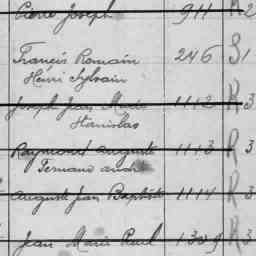 Pierre Joseph 911 R 2
François Romain 246 S 1
Henri Sylvain
Joseph Jean Marie 1112 R 3
Stanislas
Raymond Auguste 1113 R 3
Fernand André
Auguste Jean Baptiste 1114 R 3
Jean Marie Paul 1309 R 3